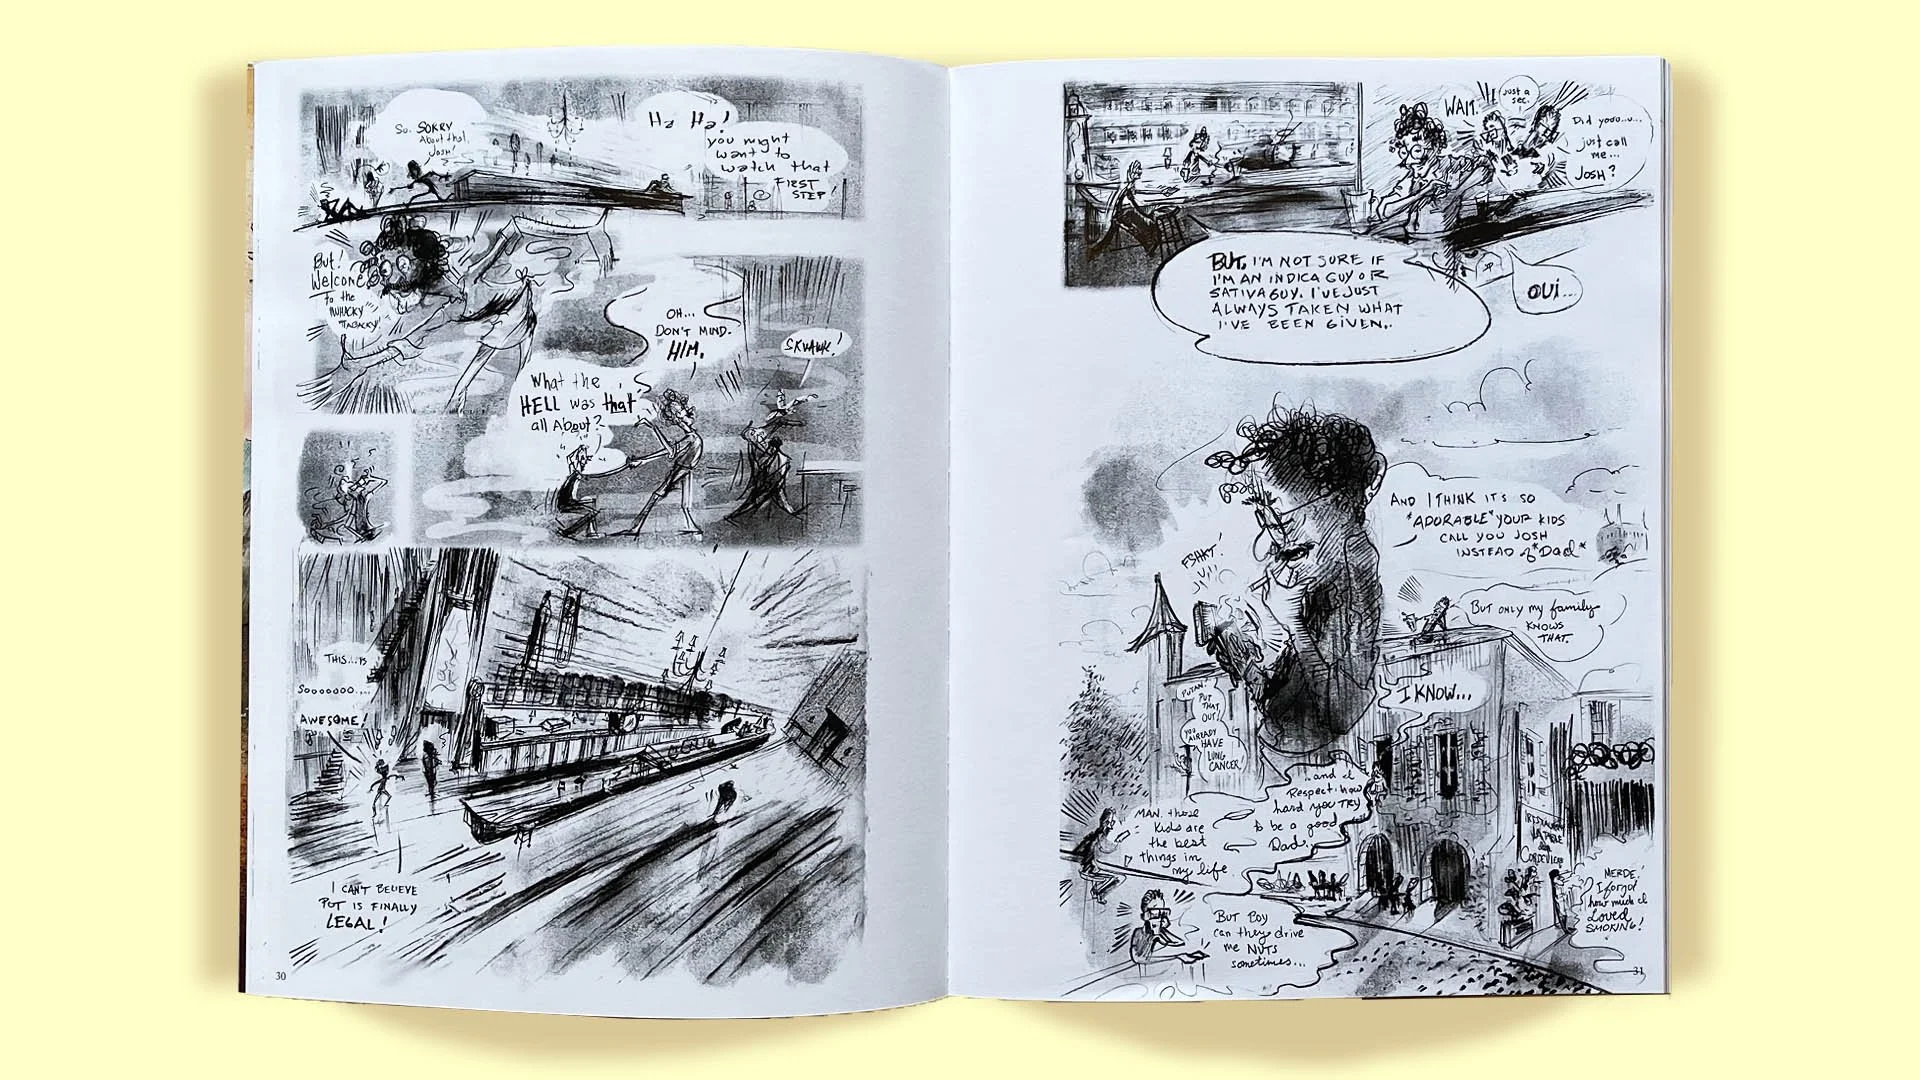 So. SORRY
About that,
Josh!
Ha Ha!
you might
want to
watch that
FIRST
STEP!
But!
Welcome
to the
WHACKY
TABACKY!
OH...
DON'T MIND.
HIM.
SKVAWK!
What the
HELL was that
all About?
THIS...IS
Sooooooo....
AWESOME!
I CAN'T BELIEVE
POT IS FINALLY
LEGAL!
30
WAIT.
Just a
sec.
Did yooo..u...
just call
me...
JOSH?
BUT, I'M NOT SURE IF
I'M AN INDICA GUY OR
SATIVA GUY. I'VE JUST
ALWAYS TAKEN WHAT
I'VE BEEN GIVEN..
OUI...
FSHKT!
AND I THINK IT'S SO
*ADORABLE* YOUR KIDS
CALL YOU JOSH
INSTEAD of *Dad*
BUT ONLY my family
KNOWS
THAT.
I KNOW...
PUTAN!
PUT
THAT
OUT!
YOU ALREADY
HAVE
LUNG
CANCER!
...and I
Respect how
hard you TRY
to be a good
Dad..
MAN. those
kids are
the best
things in
my life
RESTAURANT
LA TABLE
DES
CORDELIERS
BUT BOY
can they drive
me NUTS
sometimes...
MERDE!
I forgot
how much I
Loved
SMOKING!
31